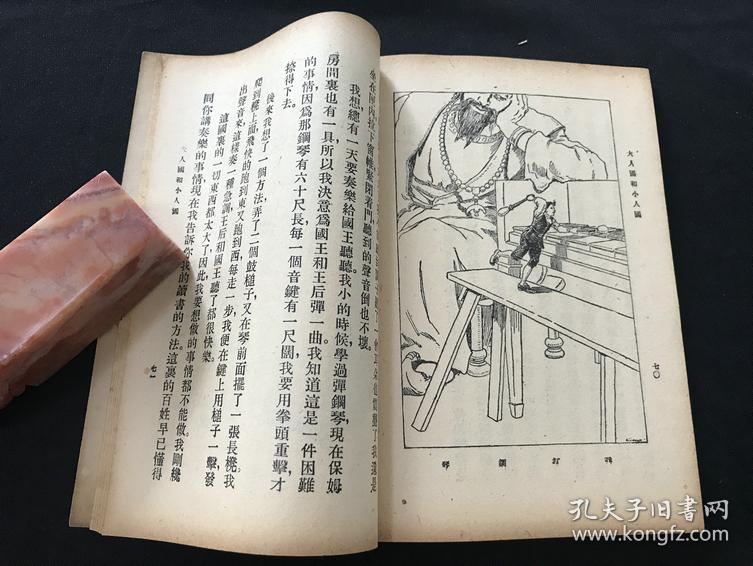 大人國和小人國
七〇
我打鋼琴
了我還是
坐在屏內,拉下窗幃,緊閉着門,聽到的聲音倒也不壞。
我想總有一天要奏樂給國王聽聽。我小的時候學過彈鋼琴,現在保姆
房間裏也有一具,所以我決意爲國王和王后彈一曲。我知道這是一件困難
的事情,因爲那鋼琴有六十尺長,每一個音鍵有一尺闊,我要用拳頭重擊才
捺得下去。
後來我想了一個方法,弄了二個鼓槌子,又在琴前面擺了一張長櫈。我
爬到櫈上面,飛快的跑到東又跑到西,每走一步,我便在鍵上用槌子一擊,發
出聲音來,這樣奏一種急調,王后和國王聽了都很快樂。
這國裏的一切東西都太大了,因此我要想做的事情都不能做。我剛纔
同你講奏樂的事情,現在我告訴你我的讀書的方法。這裏的百姓早已懂得
大人國和小人國
七一
孔夫子旧书网
www.kongfz.com